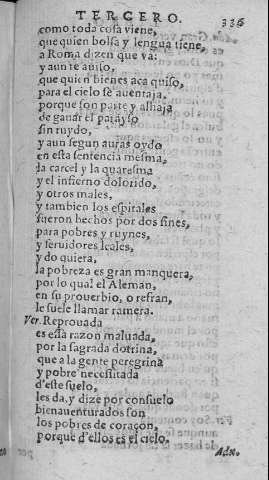 TERCERO. 336
como toda cosa viene,
que quien bolsa y lengua tiene,
a Roma dizen que va:
y aun te auiso,
que quien bienes aca quiso,
para el cielo se auentaja.
porque son parte y alhaja
de ganar el parayso
sin ruydo,
y aun segun auras oydo
en esta sentencia mesma,
la carcel y la quaresma
y el infierno dolorido,
y otros males,
y tambien los espitales
fueron hechos por dos fines,
para pobres y ruynes,
y seruidores leales,
y do quiera,
la pobreza es gran manquera,
por lo qual el Aleman,
en su prouerbio, o refran,
le suele llamar ramera.
Ver. Reprouada
es essa razon maluada,
por la sagrada dotrina,
que a la gente peregrina
y pobre necessitada
d'este suelo,
les da, y dize por consuelo
bienauenturados son
los pobres de coraçon,
porque d'ellos es el cielo.
Adu.